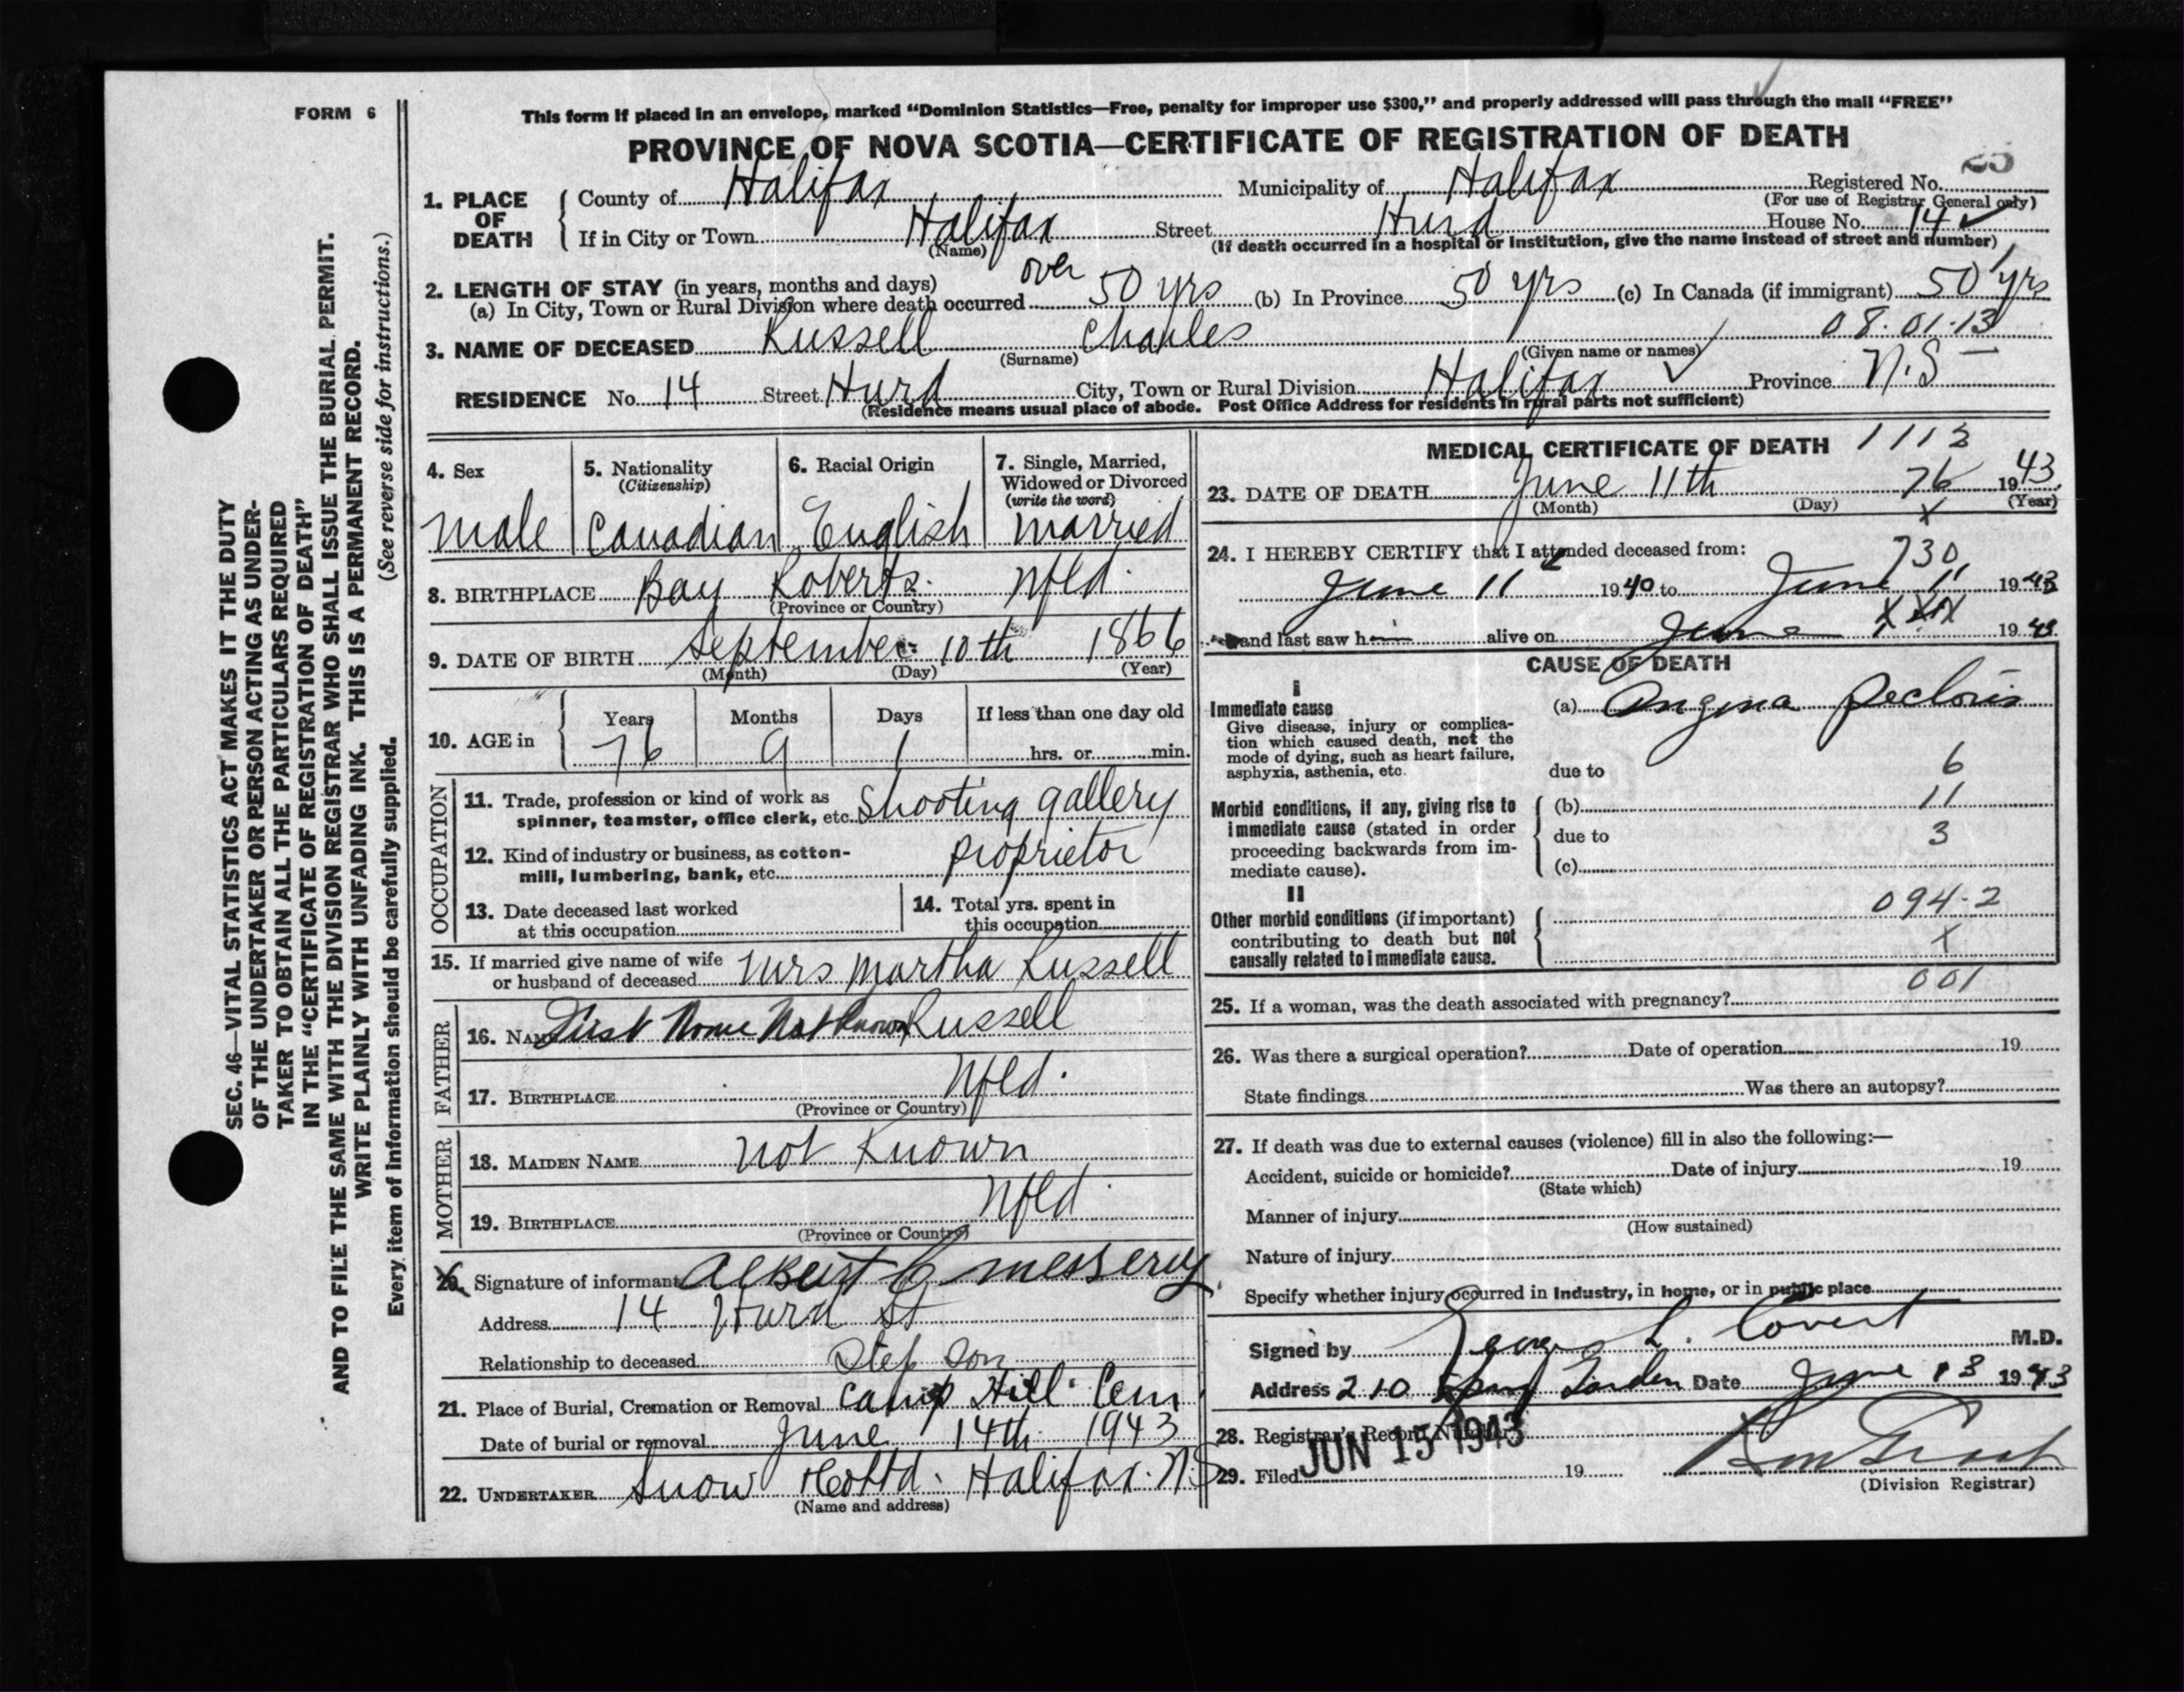 FORM 6
This form if placed in an envelope, marked “Dominion Statistics—Free, penalty for improper use $300,” and properly addressed will pass through the mail “FREE”
PROVINCE OF NOVA SCOTIA—CERTIFICATE OF REGISTRATION OF DEATH
1. PLACE OF DEATH
County of Halifax Municipality of Halifax Registered No. 25
(For use of Registrar General only)
If in City or Town Halifax Street Hurd House No. 14
(Name) (If death occurred in a hospital or institution, give the name instead of street and number)
2. LENGTH OF STAY (in years, months and days)
(a) In City, Town or Rural Division where death occurred over 50 yrs (b) In Province 50 yrs (c) In Canada (if immigrant) 50 yrs
08.01.13
3. NAME OF DECEASED Russell Charles
(Surname) (Given name or names)
RESIDENCE No. 14 Street Hurd City, Town or Rural Division Halifax Province N.S
(Residence means usual place of abode. Post Office Address for residents in rural parts not sufficient)
4. Sex
male
5. Nationality
(Citizenship)
Canadian
6. Racial Origin
English
7. Single, Married,
Widowed or Divorced
(write the word)
married
8. BIRTHPLACE Bay Roberts. Nfld.
(Province or Country)
9. DATE OF BIRTH September 10th 1866
(Month) (Day) (Year)
10. AGE in
Years Months Days If less than one day old
76 9 1 hrs. or min.
OCCUPATION
11. Trade, profession or kind of work as
spinner, teamster, office clerk, etc. Shooting gallery
12. Kind of industry or business, as cotton-
mill, lumbering, bank, etc. proprietor
13. Date deceased last worked
at this occupation
14. Total yrs. spent in
this occupation
15. If married give name of wife
or husband of deceased Mrs Martha Russell
FATHER
16. NAME First Name Not Known Russell
17. BIRTHPLACE Nfld.
(Province or Country)
MOTHER
18. MAIDEN NAME not Known
19. BIRTHPLACE Nfld.
(Province or Country)
20. Signature of informant Albert C Messervy
Address 14 Hurd St
Relationship to deceased Step son
21. Place of Burial, Cremation or Removal Camp Hill Cem
Date of burial or removal June 14th 1943
22. UNDERTAKER Snow & Co Ltd. Halifax. N.S
(Name and address)
MEDICAL CERTIFICATE OF DEATH 1113
23. DATE OF DEATH June 11th 76 1943.
(Month) (Day) (Year)
X
24. I HEREBY CERTIFY that I attended deceased from:
730
June 11 1940 to June 11 1943
and last saw h alive on June 19 43
CAUSE OF DEATH
I
Immediate cause
Give disease, injury or complica-
tion which caused death, not the
mode of dying, such as heart failure,
asphyxia, asthenia, etc.
(a) Angina Pectoris
due to 6
Morbid conditions, if any, giving rise to
immediate cause (stated in order
proceeding backwards from im-
mediate cause).
(b) 11
due to 3
(c)
II
Other morbid conditions (if important)
contributing to death but not
causally related to immediate cause.
094-2
X
001
25. If a woman, was the death associated with pregnancy?
26. Was there a surgical operation? Date of operation 19
State findings Was there an autopsy?
27. If death was due to external causes (violence) fill in also the following:—
Accident, suicide or homicide? Date of injury 19
(State which)
Manner of injury
(How sustained)
Nature of injury
Specify whether injury occurred in Industry, in home, or in public place
Signed by L. Covert M.D.
Address 210 Spring Garden Date June 13 1943
28. Registrar's Record Number
29. Filed JUN 15 1943 19
(Division Registrar)
SEC. 46—VITAL STATISTICS ACT MAKES IT THE DUTY
OF THE UNDERTAKER OR PERSON ACTING AS UNDER-
TAKER TO OBTAIN ALL THE PARTICULARS REQUIRED
IN THE “CERTIFICATE OF REGISTRATION OF DEATH”
AND TO FILE THE SAME WITH THE DIVISION REGISTRAR WHO SHALL ISSUE THE BURIAL PERMIT.
WRITE PLAINLY WITH UNFADING INK. THIS IS A PERMANENT RECORD.
(See reverse side for instructions.)
Every item of information should be carefully supplied.